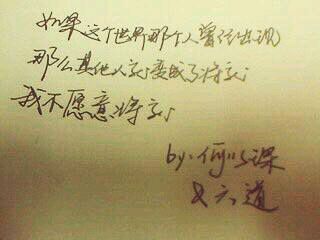 如果这个世界那个人曾经出现
那么其他人就变成了将就
我不愿意将就
by:何以
六道